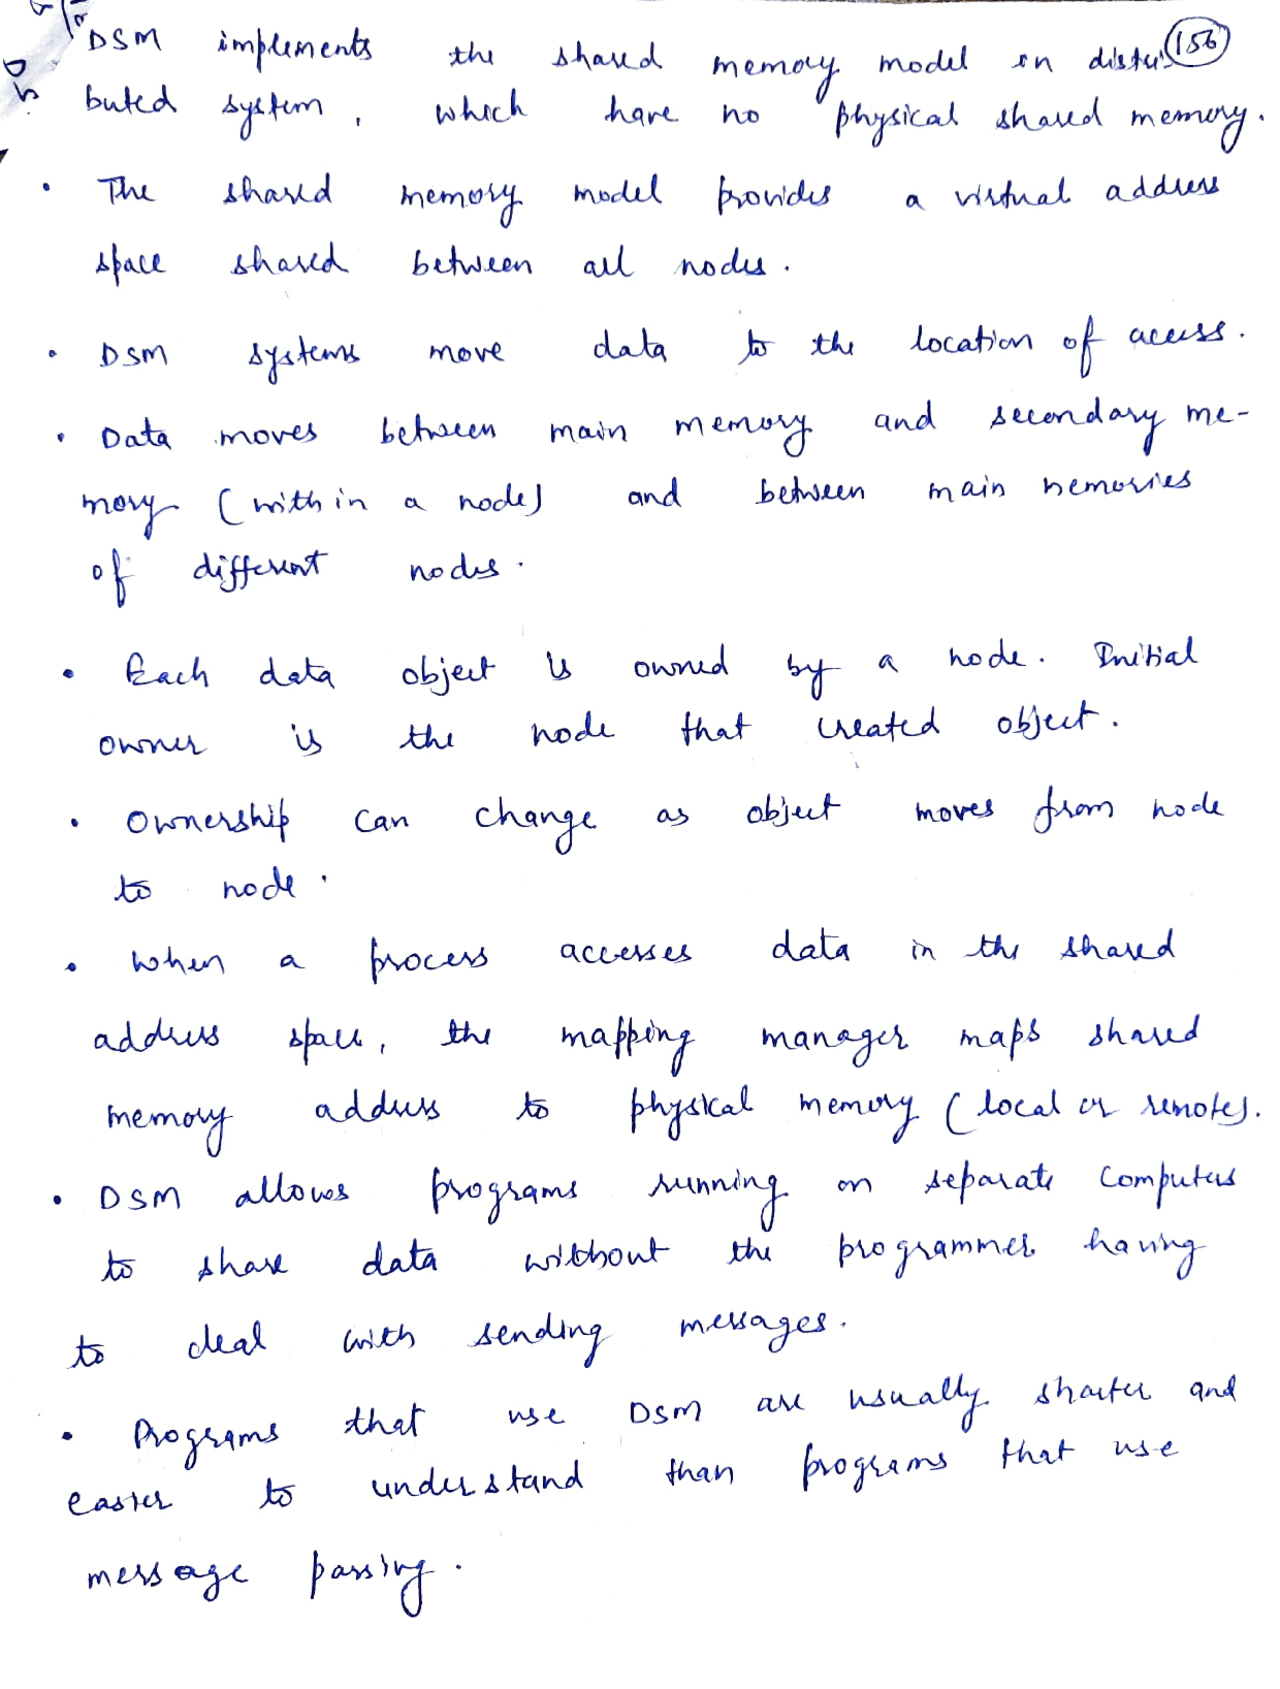 DSM implements the shared memory model in distri- (156)
buted system, which have no physical shared memory.
• The shared memory model provides a virtual address
space shared between all nodes.
• DSM systems move data to the location of access.
• Data moves between main memory and secondary me-
mory (within a node) and between main memories
of different nodes.
• Each data object is owned by a node. Initial
owner is the node that created object.
• Ownership can change as object moves from node
to node.
• When a process accesses data in the shared
address space, the mapping manager maps shared
memory address to physical memory (local or remote).
• DSM allows programs running on separate computers
to share data without the programmer having
to deal with sending messages.
• Programs that use DSM are usually shorter and
easier to understand than programs that use
message passing.